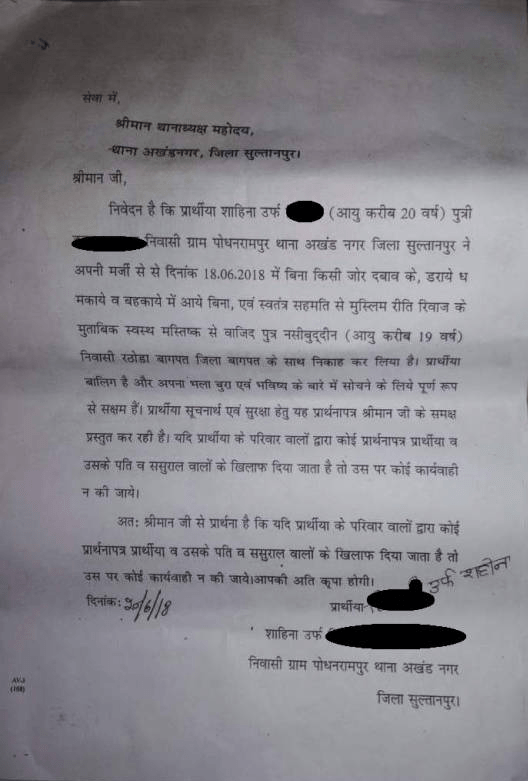 सेवा में,
श्रीमान थानाध्यक्ष महोदय,
थाना अखंडनगर, जिला सुल्तानपुर।
श्रीमान जी,
निवेदन है कि प्रार्थीया शाहिना उर्फ (आयु करीब 20 वर्ष) पुत्री
निवासी ग्राम पोधनरामपुर थाना अखंड नगर जिला सुल्तानपुर ने
अपनी मर्जी से से दिनांक 18.06.2018 में बिना किसी जोर दबाव के, डराये ध
मकाये व बहकाये में आये बिना, एवं स्वतंत्र सहमति से मुस्लिम रीति रिवाज के
मुताबिक स्वस्थ मस्तिष्क से वाजिद पुत्र नसीबुद्दीन (आयु करीब 19 वर्ष)
निवासी रठोडा बागपत जिला बागपत के साथ निकाह कर लिया है। प्रार्थीया
बालिग है और अपना भला बुरा एवं भविष्य के बारे में सोचने के लिये पूर्ण रूप
से सक्षम हैं। प्रार्थीया सूचनार्थ एवं सुरक्षा हेतु यह प्रार्थनापत्र श्रीमान जी के समक्ष
प्रस्तुत कर रही है। यदि प्रार्थीया के परिवार वालों द्वारा कोई प्रार्थनापत्र प्रार्थीया व
उसके पति व ससुराल वालों के खिलाफ दिया जाता है तो उस पर कोई कार्यवाही
न की जाये।
अतः श्रीमान जी से प्रार्थना है कि यदि प्रार्थीया के परिवार वालों द्वारा कोई
प्रार्थनापत्र प्रार्थीया व उसके पति व ससुराल वालों के खिलाफ दिया जाता है तो
उस पर कोई कार्यवाही न की जाये।आपकी अति कृपा होगी।
उर्फ शहीना
दिनांक: 20/6/18 प्रार्थीया
शाहिना उर्फ
निवासी ग्राम पोधनरामपुर थाना अखंड नगर
जिला सुल्तानपुर।
(168)